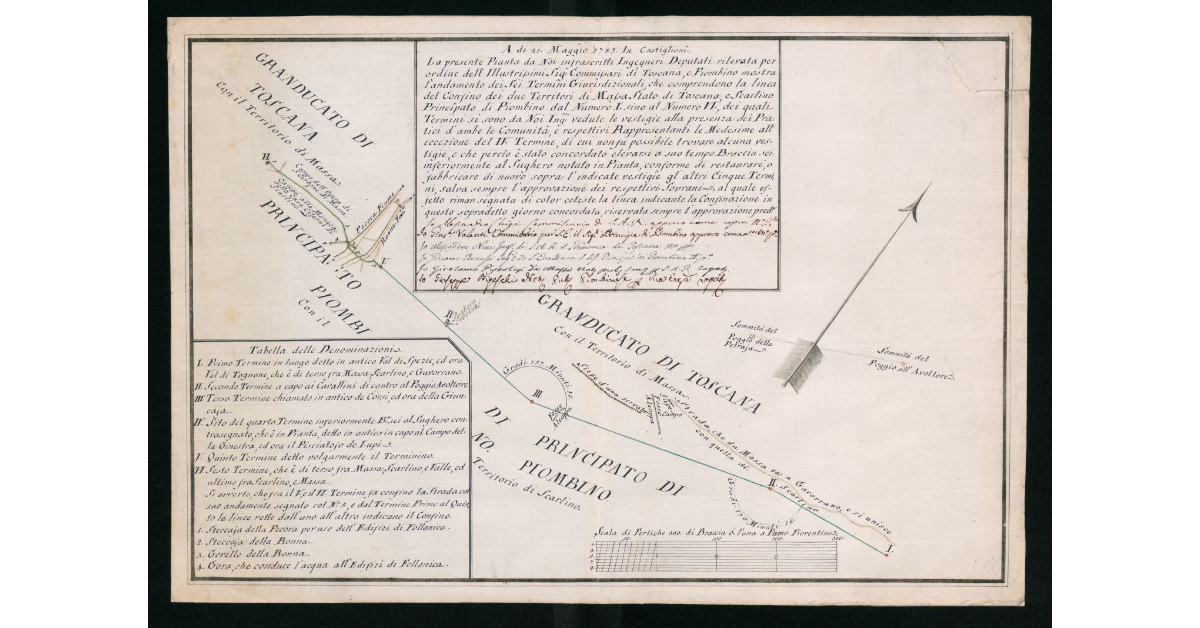 A di 21. Maggio 1782. In Castiglioni.
La presente Pianta da Noi infrascritti Ingegneri Deputati rilevata per
ordine dell Illustrisimi Sigri Commisari di Toscana, e Piombino mostra
l'andamento dei Sei Termini Giurisdizionali, che comprendono la linea
del Confino dei due Territori di Masa Stato di Toscana, e Scarlino
Principato di Piombino dal Numero I. sino al Numero VI., dei quali
Termini si sono da Noi Ingri vedute le vestigie alla presenza dei Pra-
tici d'ambe le Comunità, e respettivi Rappresentanti le Medesime all'
eccezione del IV. Termine, di cui non fù possibile trovare alcuna ves-
tigie, e che perciò è stato concordato elevarsi a suo tempo Braccia sei
inferiormente al Sughero notato in Pianta, conforme di restaurare, o
fabbricare di nuovo sopra l'indicate vestigie gl'altri Cinque Term
ini, salva sempre l'approvazione dei respettivi Sovrani, al quale ef-
fetto riman segnata di color celeste la linea indicante la Confinazione in
questo sopradetto giorno concordata, riservata sempre l'approvazione
GRANDUCATO DI
TOSCANA
Con il Territorio di Massa
VI.
Pecora Fiume
Ronna
V.
PRINCIPATO
PIOMBI
Con il
IV.
GRANDUCATO DI TOSCANA
Con il Territorio di Massa
Sommità del
Poggio della
Petraja
Sommità del
Poggio all'Avoltore
Gradi 152. Minuti 10
III.
Siepe d'una serrata
Campo
Strada, che da Massa va a Gavorrano, e si unisce
con quella di Scarlino
DI PRINCIPATO DI
NO. PIOMBINO
Territorio di Scarlino.
II.
Gradi
Minuti 15
I.
Scala di Pertiche 300. di Braccia 6. l'una a Panno Fiorentino
Tabella delle Denominazioni.
I. Primo Termine in luogo detto in antico Val di Spezie, ed ora
Val di Tognone, che è di terso fra Massa, Scarlino, e Gavorrano.
II. Secondo Termine a capo ai Cavallini di contro al Poggio Avoltore
III. Terso Termine chiamato in antico de Corsi, ed ora della Giun-
caja.
IV. Sito del quarto Termine inferiormente Ba. sei al Sughero con-
trasegnato, che è in Pianta, detto in antico in capo al Campo del-
la Ginestra, ed ora il Pisciatojo de Lupi.
V. Quinto Termine detto volgarmente il Terminino.
VI. Sesto Termine, che è di terso fra Massa, Scarlino, e Valle, ed
ultimo fra Scarlino, e Massa.
Si avverte, che fra il V. e il VI. Termine, fa confino la Strada col
suo andamento segnato col No. 5. e dal Termine Primo al Quin-
to le linee rette dall'uno all'altro indicano il Confino.
1. Steccaja della Pecora per uso dell'Edifizi di Follonica.
2. Steccaja della Ronna.
3. Gorello della Ronna.
4. Gora, che conduce l'acqua all'Edifizi di Follonica.